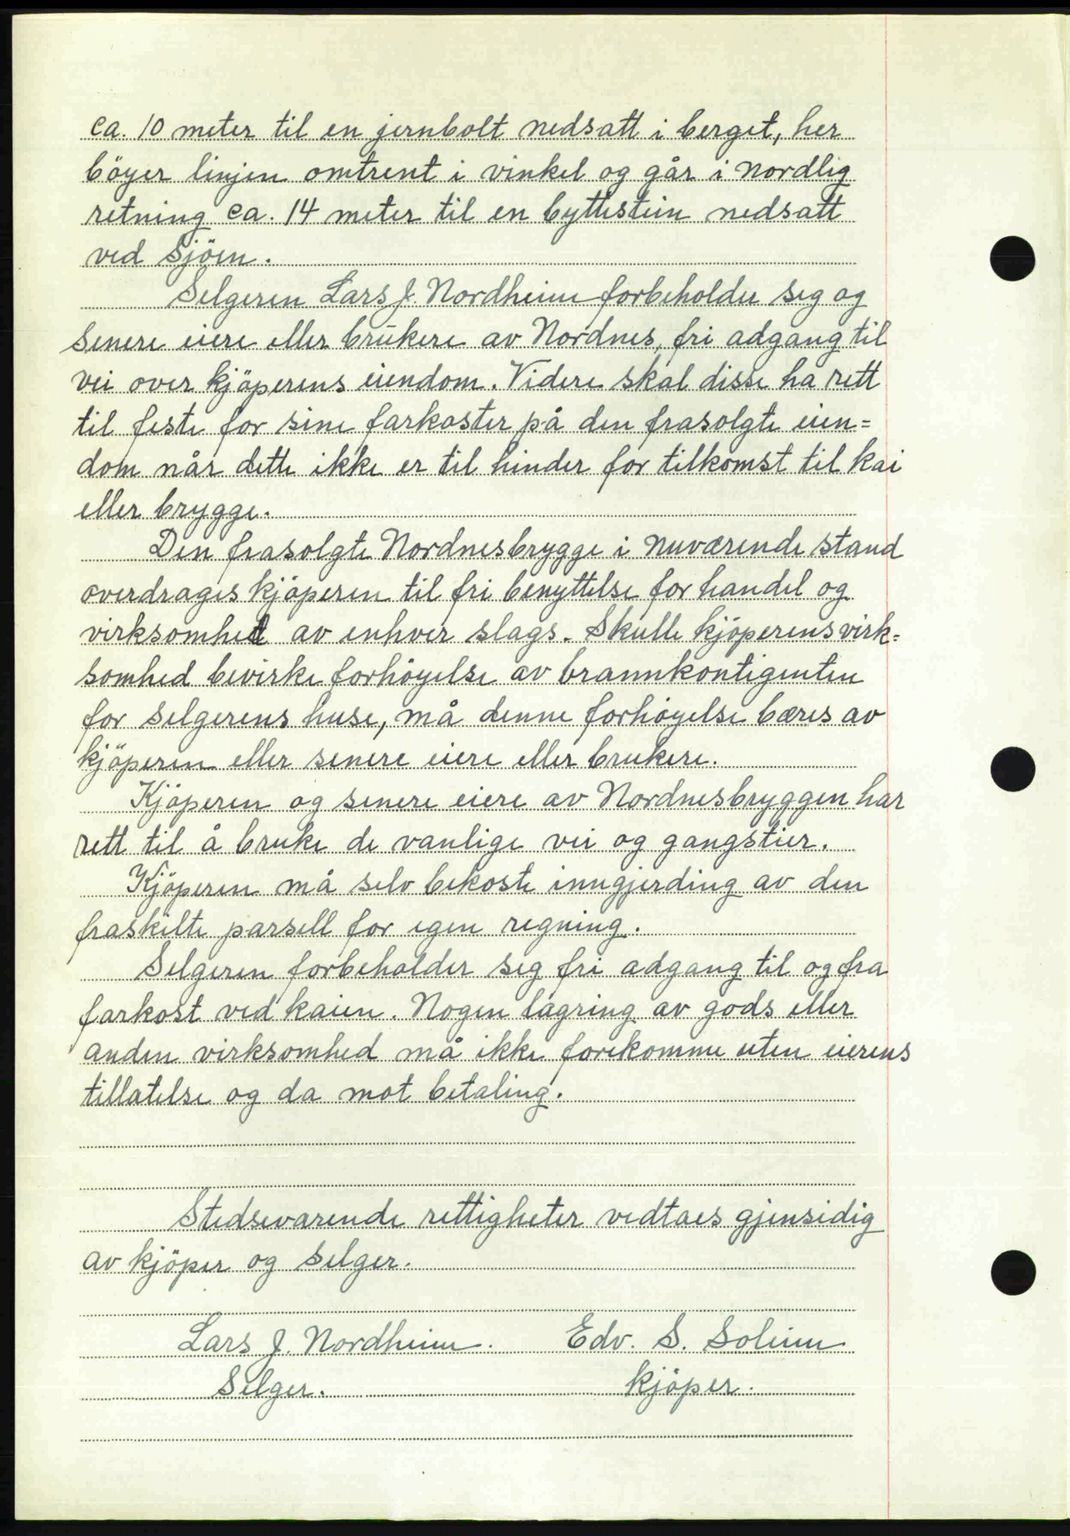 ca. 10 meter til en jernbolt nedsatt i berget, her
böyer linjen omtrent i vinkel og går i nordlig
retning ca. 14 meter til en byttestein nedsatt
ved sjöen.
Selgeren Lars J. Nordheim forbeholder seg og
senere eiere eller brukere av Nordnes, fri adgang til
vei over kjöperens eiendom. Videre skal disse ha rett
til feste for sine farkoster på den frasolgte eien=
dom når dette ikke er til hinder for tilkomst til kai
eller brygge.
Den frasolgte Nordnesbrygge i nuværende stand
overdrages kjöperen til fri benyttelse for handel og
virksomhet av enhver slags. Skulle kjöperens virk=
somhed bevirke forhöyelse av brannkontigenten
for selgerens huse, må denne forhöyelse bæres av
kjöperen eller senere eiere eller brukere.
Kjöperen og senere eiere av Nordnesbryggen har
rett til å bruke de vanlige vei og gangstier.
Kjöperen må selv bekoste inngjerding av den
fraskilte parsell for egen regning.
Selgeren forbeholder seg fri adgang til og fra
farkost ved kaien. Nogen lagring av gods eller
anden virksomhed må ikke forekomme uten eierens
tillatelse og da mot betaling.
Stedsevarende rettigheter vedtaes gjensidig
av kjöper og selger.
Lars J. Nordheim. Edv. S. Soleim
Selger. kjöper.